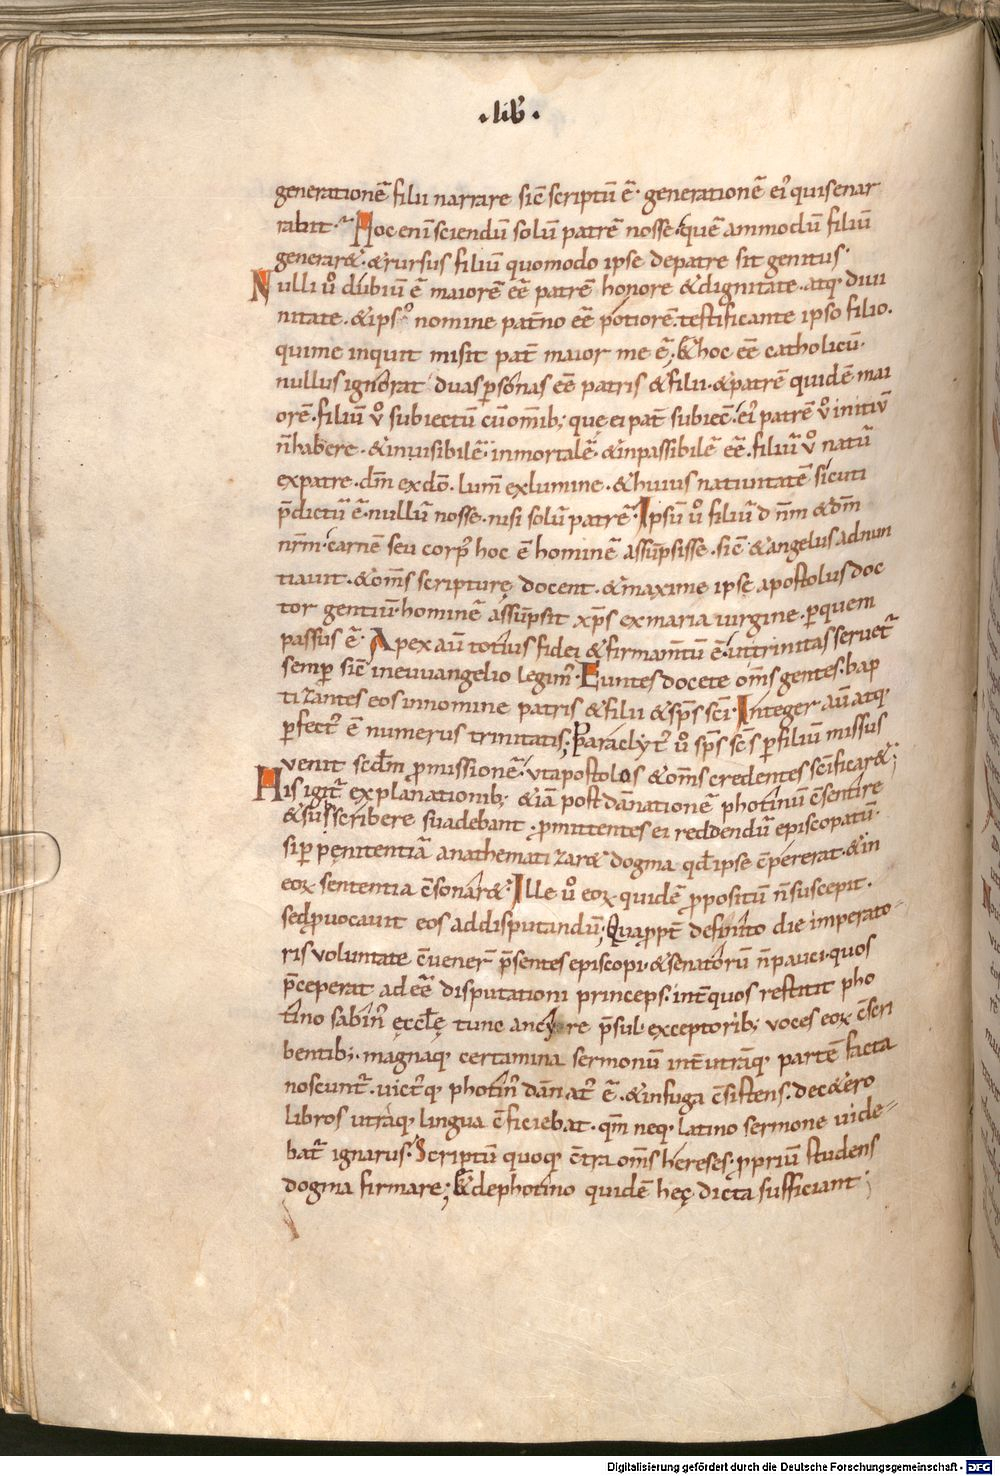 .lib̄.
generationē filii narrare sic̄ scriptū ē. generationē ei᾿ quis enar
rabit. Hoc eni᷒ sciendū solū patrē nosse quē ammodū filiū
generar&. & rursus filiū quomodo ipse de patre sit genitus.
Nulli ů dubiū ē maiorē eē patrē honore & dignitate. atq; diui
nitate. & ipso nomine pat̄no eē potiorē. testificante ipso filio.
qui me inquit misit pat̄ maior me ē; & hoc eē catholicū.
nullus ignorat duas ꝑsonas eē patris & filii. & patrē quidē mai
orē. filiū ů subiectū cū om̄ib; quę ei pat̄ subiec̄. ei᾿ patrē ů initiū
n̄ habere. & inuisibilē. inmortalē. & inpassibilē eē. filiū ů natū
ex patre. dm̄ ex dō. lum̄ ex lumine. & huius natiuitatē sicuti
p̄dictū ē. nullū nosse. nisi solū patrē. Ipsū ů filiū d nm̄ & dm̄
nr̄m. carnē seu corp᾿ hoc ē hominē assūpsisse. sic̄ & angelus adnun
tiauit. & om̄s scripturę docent. & maxime ipsę apostolus doc
tor gentiū. hominē assūpsit xp̄s ex maria uirgine. ꝑ quem
passus ē. Apex au᷒ totius fidei & firmam̄tū ē. ut trinitas seruet᾿
semꝑ sic̄ in euuangelio legim᾿. Euntes docete om̄s gentes. bap
tizantes eos in nomine patris & filii & sp̄s sc̄i. Integer au᷒ atq;
ꝑfect᾿ ē numerus trinitatis; Paraclyt᾿ ů sp̄s sc̄s ꝑ filiū missus
uenit sc̄dm ꝓmissionē. ut apostolos & om̄s credentes sc̄ificar&;
His igit᾿ explanationib; & iā post dānationē photinū c̄sentire
& susscribere suadebant. ꝓmittentes ei reddendū episcopatū.
si ꝑ pęnitentiā anathematizar& dogma qđ ipse c̄pererat. & in
eoꝝ sententia c̄sonar&. Ille ů eoꝝ quidē ꝓpositū n̄ suscepit.
sed ꝓuocauit eos ad disputandū; Quapropt̄ definito die imperato-
ris uoluntate c̄uener̄ p̄sentes episcopi. & senatorū n̄ pauci. quos
p̄ceperat adeē disputationi princeps. int̄ quos restitit pho
tino sabin᾿ ęccłę tunc ancyre p̄sul. exceptorib; uoces eoꝝ c̄scri
bentib;. magnaq; certamina sermonū int̄ utrāq; partē facta
noscunt᾿. uict᾿q; photin᾿ dānat᾿ ē. & in fuga c̄sistens. dec&ero
libros utraq; lingua c̄ficiebat. qm̄ neq; latino sermone uide-
bat᾿ ignarus. Scriptū quoq; c̄tra om̄s hereses. ꝓpriū studens
dogma firmare; & de photino quidē hęc dicta sufficiant;
Digitalisierung gefördert durch die Deutsche Forschungsgemeinschaft - DFG